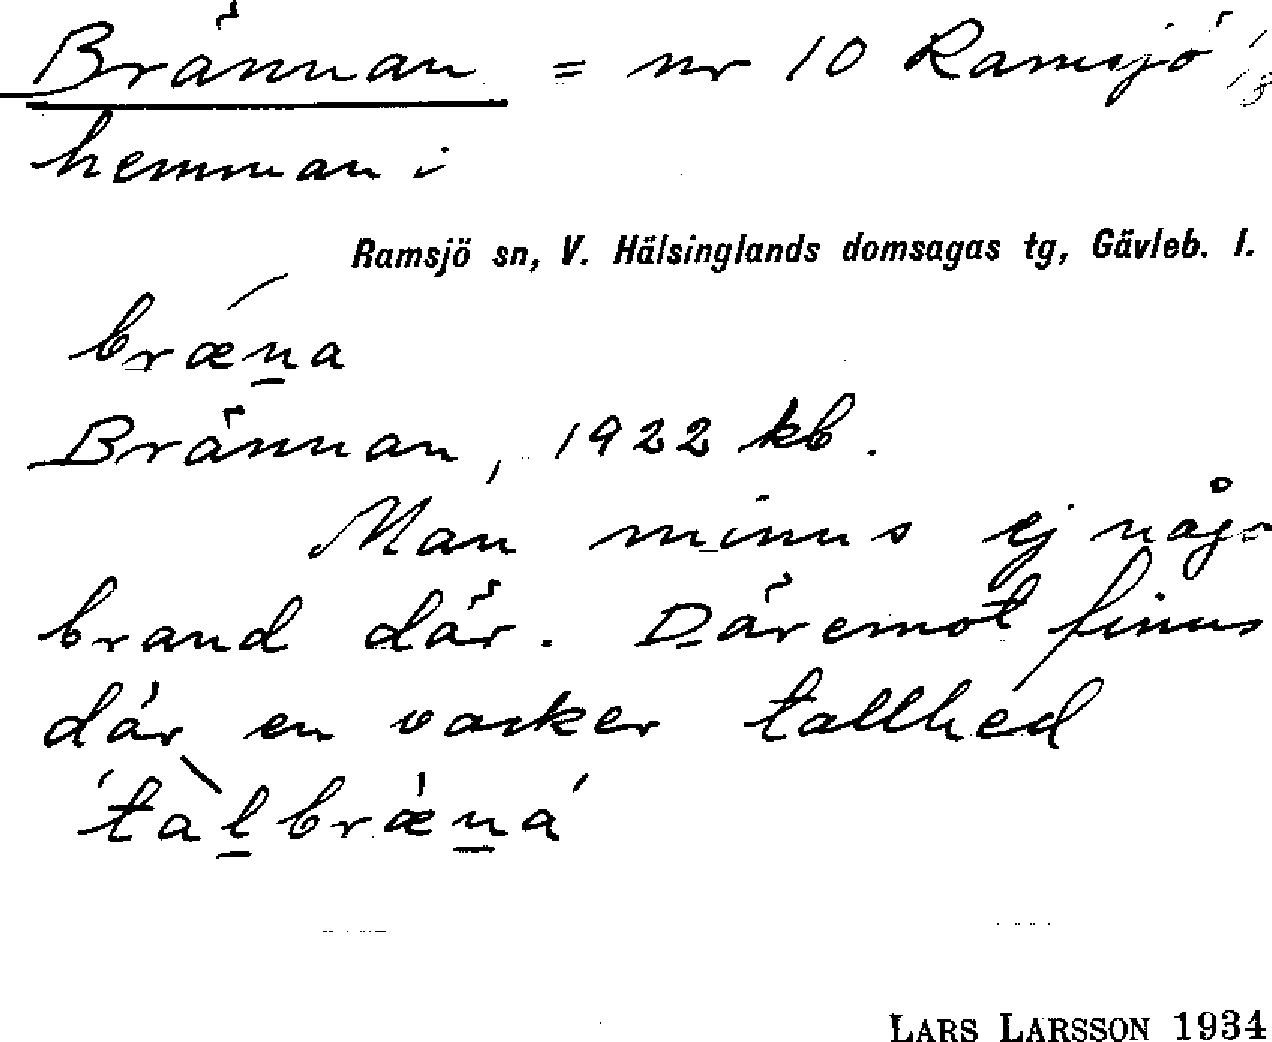 Brännan = nr 10 Ramsjö
hemman i
Ramsjö sn, V. Hälsinglands domsagas tg, Gävleb. l.
brǽn̲a
Brännan, 1922 kb.
Man minns ej någo
brand där. Däremot finns
där en vacker tallhed
ta̍l̲bræn̲a
LARS LARSSON 1934